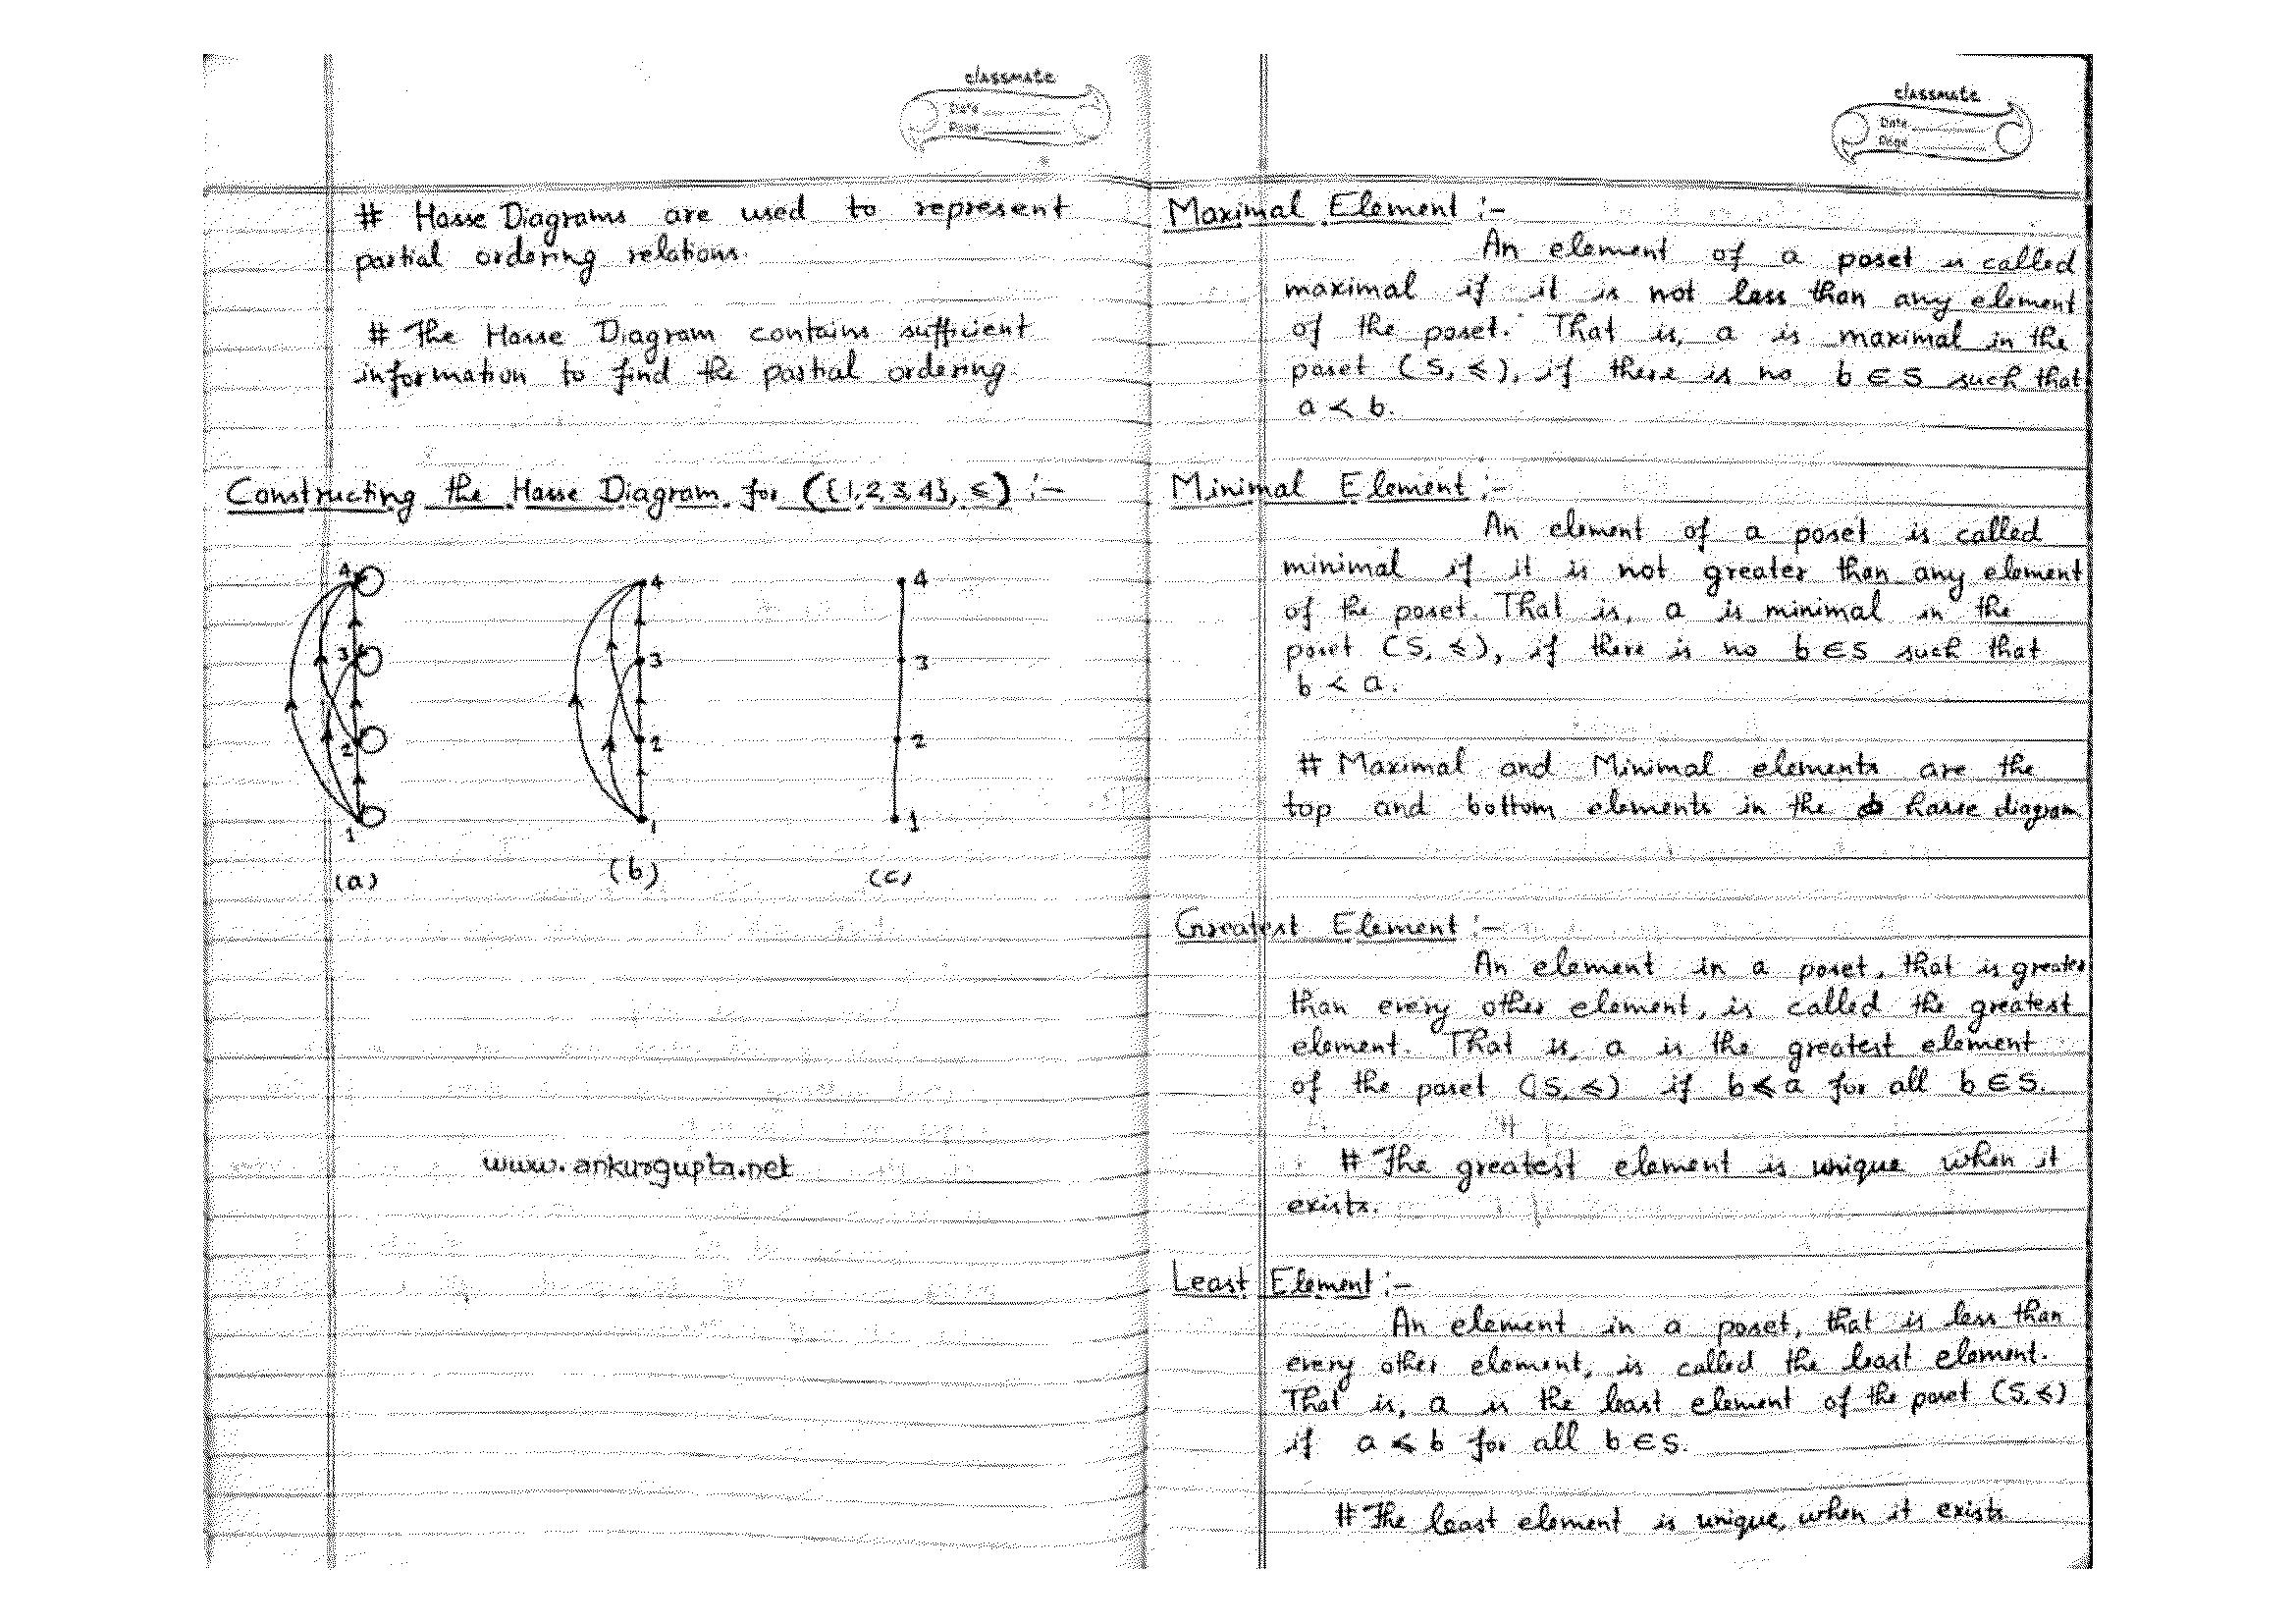 classmate
Date
Page
# Hasse Diagrams are used to represent
partial ordering relations.
# The Hasse Diagram contains sufficient
information to find the partial ordering
Constructing the Hasse Diagram for ({1,2,3,4}, ≤) :-
4
3
2
1
(a)
4
3
2
1
(b)
4
3
2
1
(c)
www.ankurgupta.net
classmate
Date
Page
Maximal Element :-
An element of a poset is called
maximal if it is not less than any element
of the poset. That is, a is maximal in the
poset (S, ≼), if there is no b ∈ S such that
a ≺ b.
Minimal Element :-
An element of a poset is called
minimal if it is not greater than any element
of the poset. That is, a is minimal in the
poset (S, ≼), if there is no b ∈ S such that
b ≺ a.
# Maximal and Minimal elements are the
top and bottom elements in the hasse diagram
Greatest Element :-
An element in a poset, that is greater
than every other element, is called the greatest
element. That is, a is the greatest element
of the poset (S, ≼) if b ≼ a for all b ∈ S.
# The greatest element is unique when it
exists.
Least Element :-
An element in a poset, that is less than
every other element, is called the least element.
That is, a is the least element of the poset (S, ≼)
if a ≼ b for all b ∈ S.
# The least element is unique, when it exists